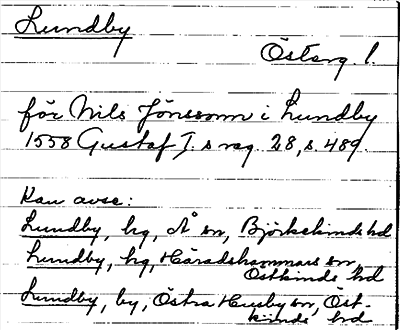 Lundby
Österg. l.
för Nils Jönssonn i Lundby
1558 Gustaf I,s reg. 28, s. 489.
Kan avse:
Lundby, hg, Å sn, Björkekinds hd
Lundby, hg, Häradshammars sn,
Östkinds hd
Lundby, by, Östra Husby sn, Öst-
kinds hd